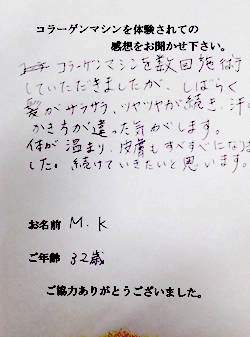 コラーゲンマシンを体験されての
感想をお聞かせ下さい。
コラーゲンマシンを数回施術
していただきましたが、しばらく
髪がサラサラ、ツヤツヤが続き、汗の
かき方が違った気がします。
体が温まり、皮膚もすべすべになりま
した。続けていきたいと思います。
お名前 M.K
ご年齢 32歳
ご協力ありがとうございました。